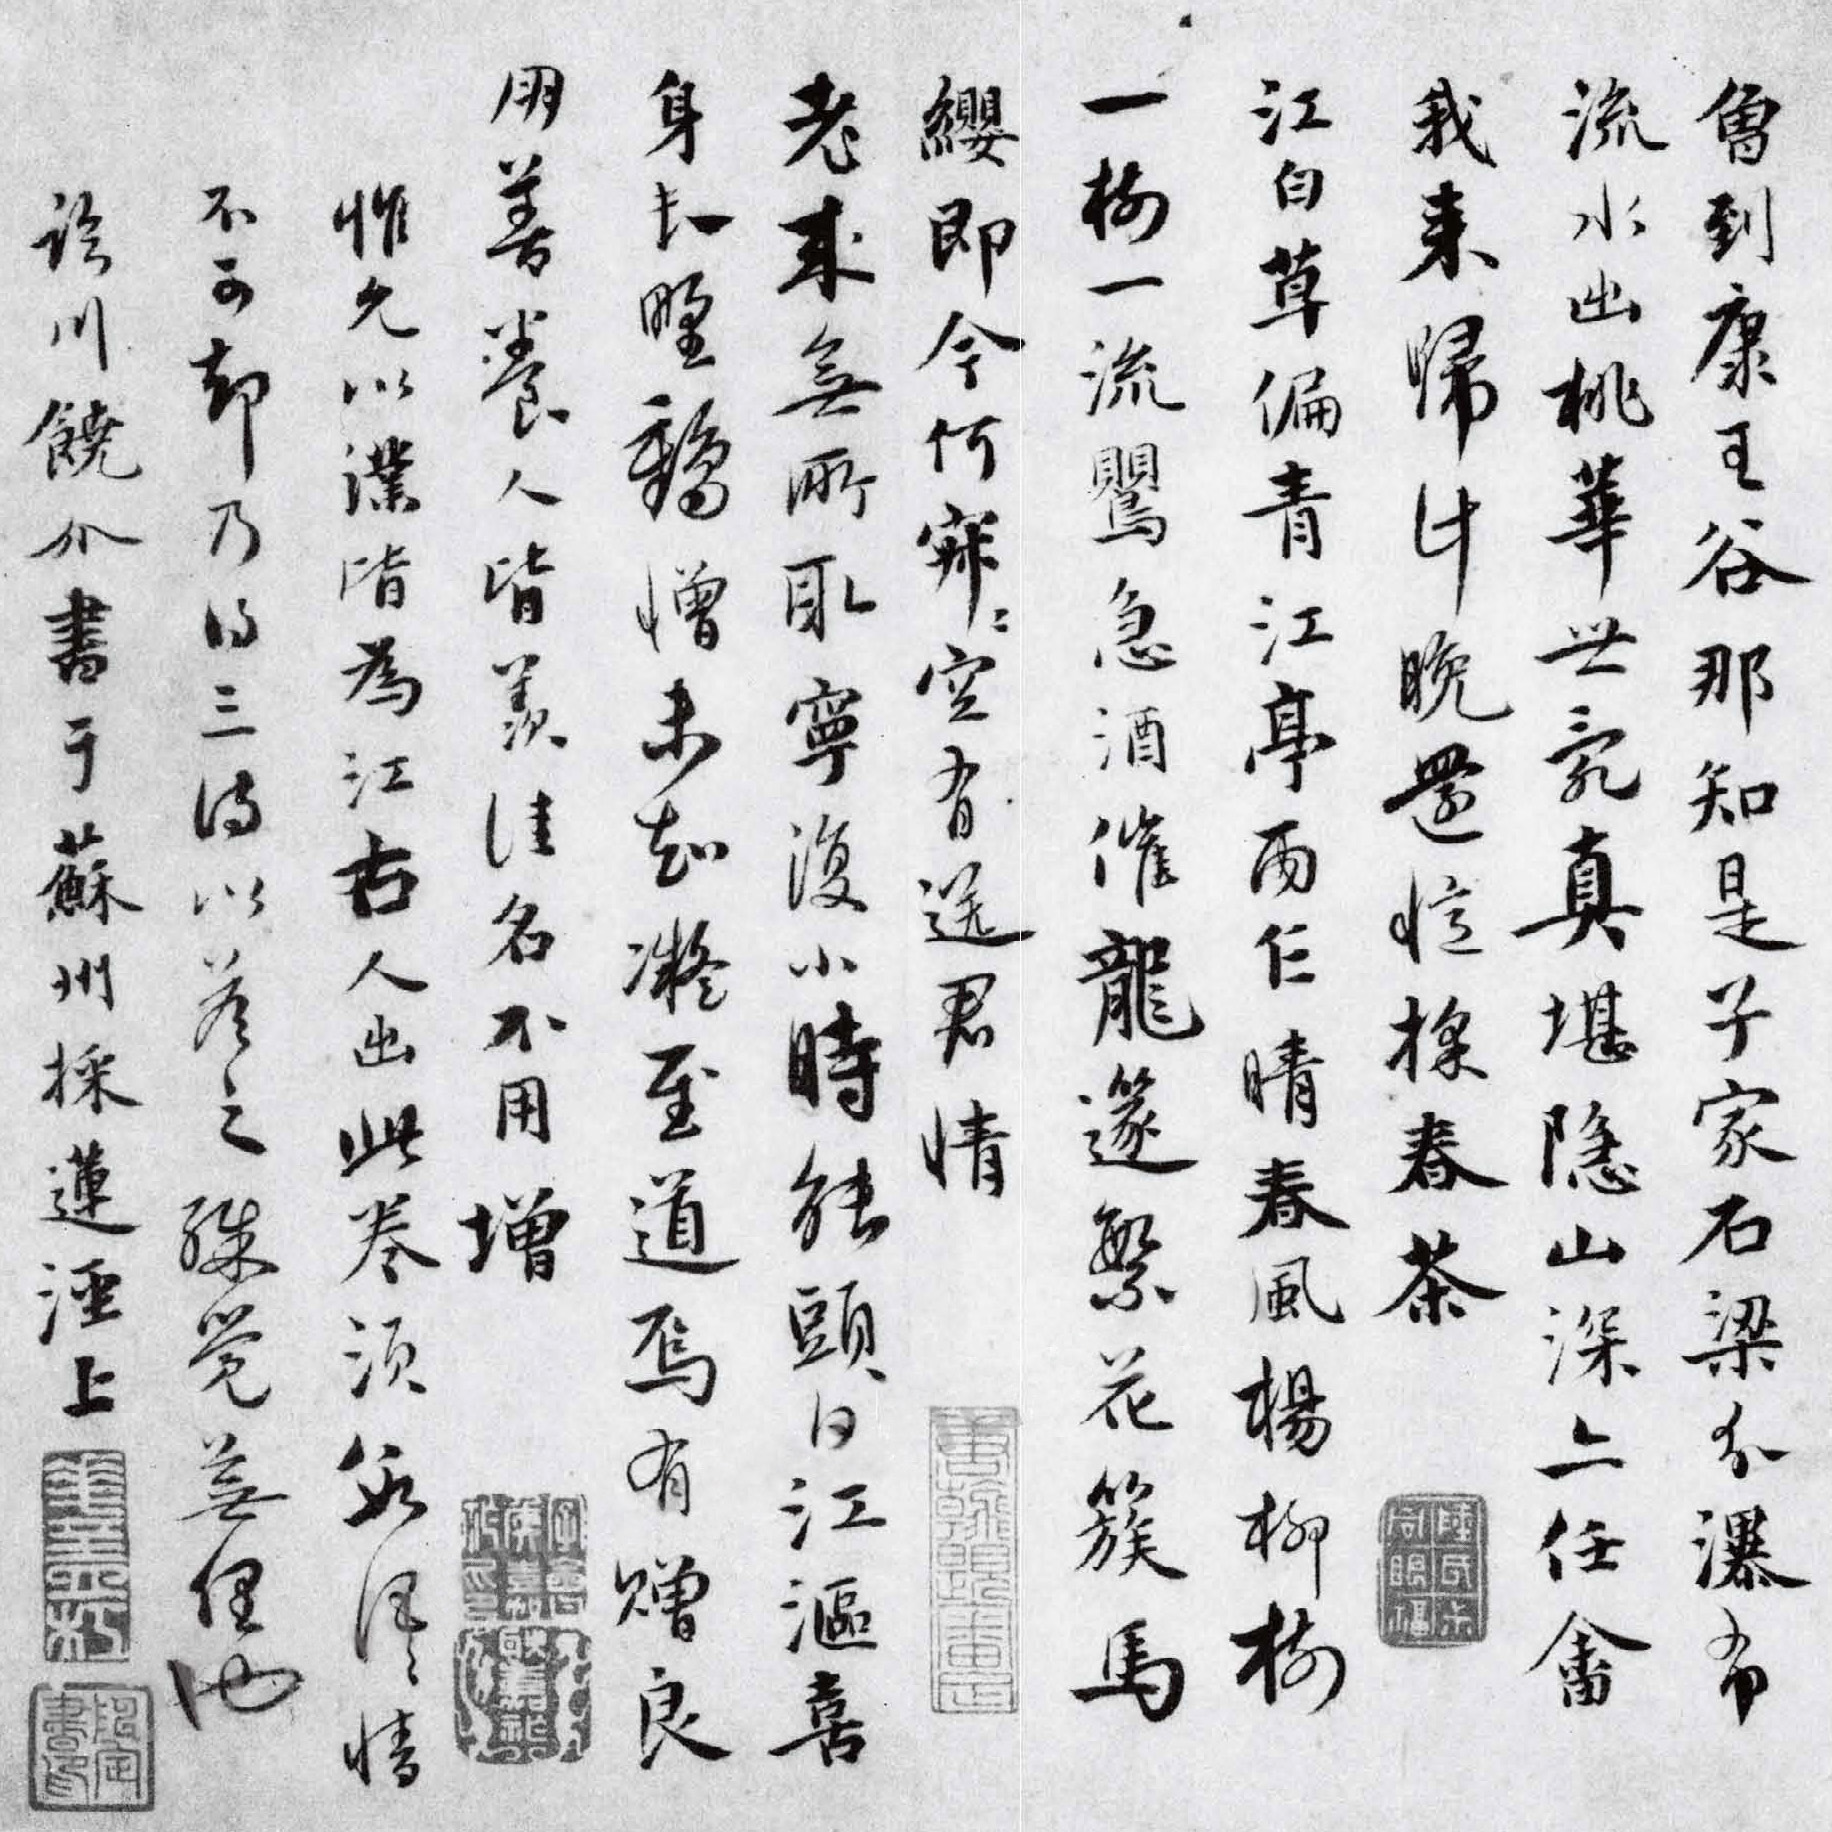 曾到康王谷那知是子家石梁分瀑布
流水出桃華世亂真堪隱山深亦任畬
我來歸計晚還憶採春茶
江白草偏青江亭雨乍晴春風楊柳樹
一樹一流鶯急酒催龍篴繁花簇馬
纓即今何寂〻空有送君情
老來無所取寧復小時能頭白江漚喜
身長野鶴憎未知凝至道焉有贈良
朋善養人皆羨佳名不用增
惟允以謙皆為江古人出此卷須我詩〻情
不可卻乃得三詩以答之殊覺無俚也
臨川饒介書于蘇州採蓮涇上